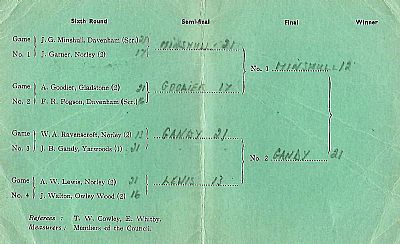 Sixth Round Semi-final Final Winner
Game J. G. Minshull, Davenham (Scr.) 21
No. 1 J. Garner, Norley (2) 17
MINSHULL 21
No. 1 MINSHULL 12
Game A. Goodier, Gladstone (2) 21
No. 2 F. R. Pogson, Davenham (Scr.)
GOODIER 17
Game W. A. Ravenscroft, Norley (2) 13
No. 3 J. B. Gandy, Yarwoods (1) 21
GANDY 21
No. 2 GANDY 21
Game A. W. Lewis, Norley (2) 21
No. 4 J. Walton, Owley Wood (2) 16
LEWIS 13
Referees : T. W. Cowley, E. Whitby.
Measurers : Members of the Council.